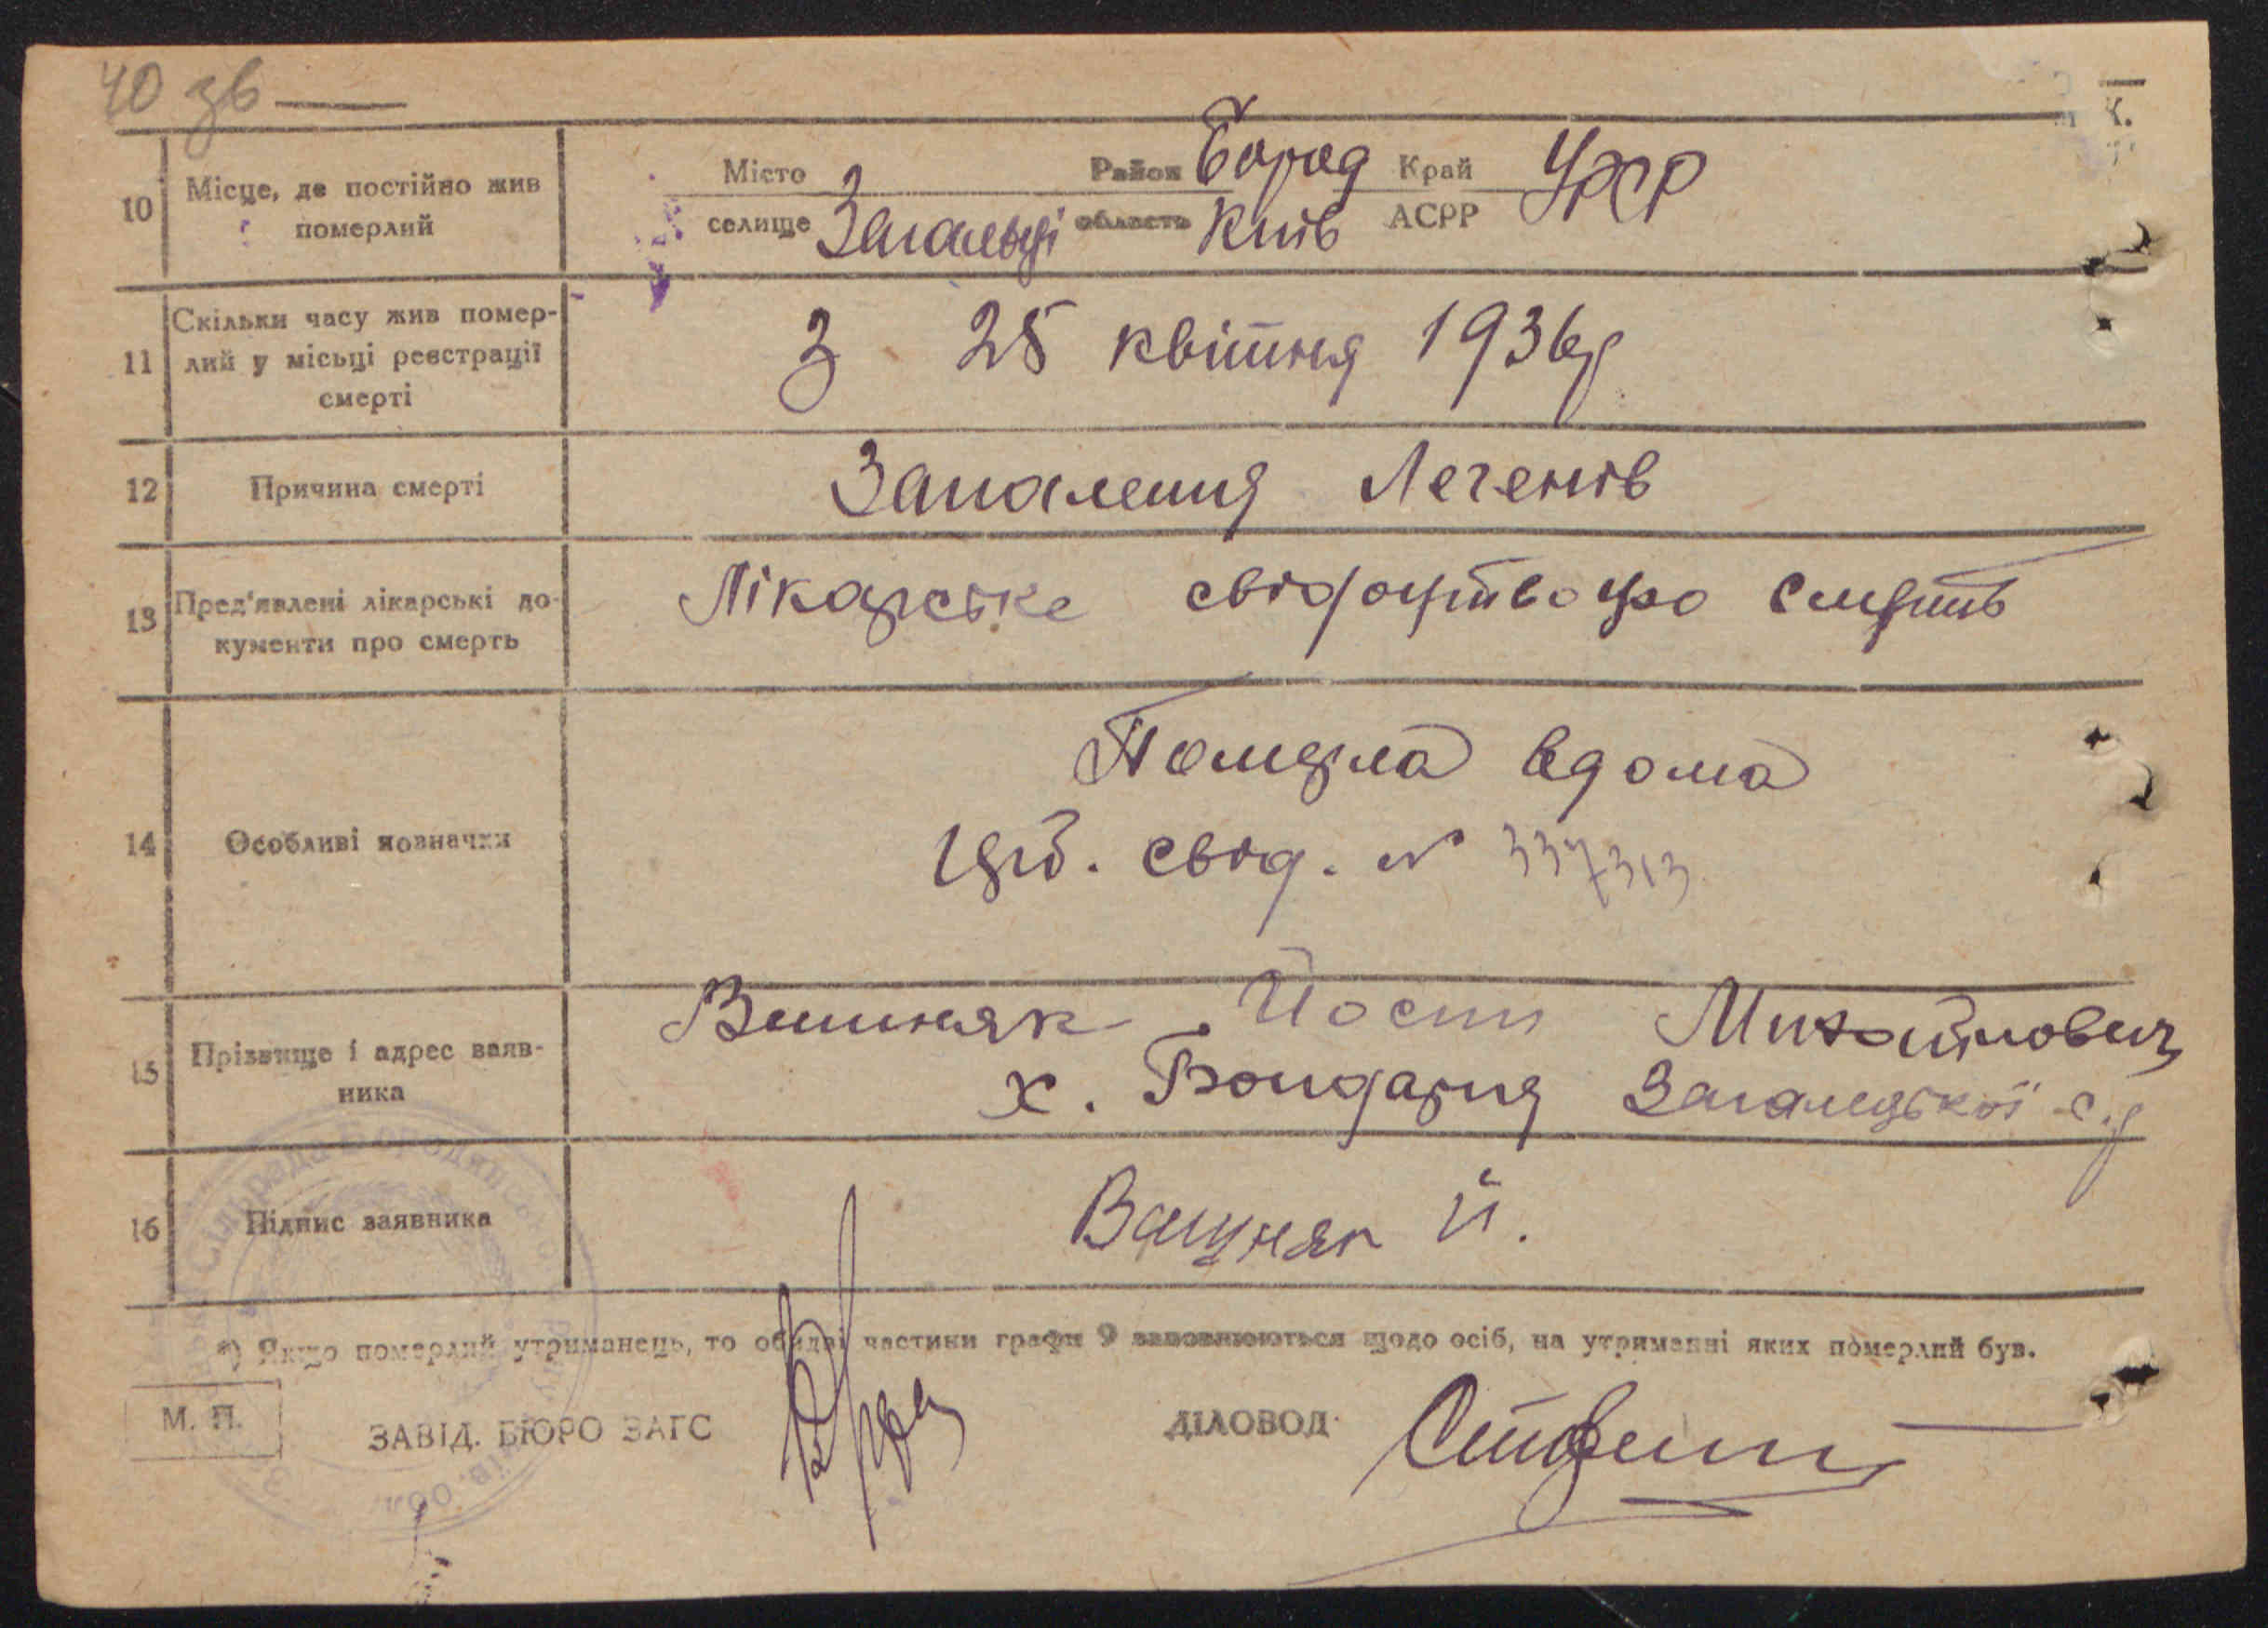 40 зв
10 Місце, де постійно жив померлий
Місто Район Бород Край УРСР
селище Загальці область Київ АСРР
11 Скільки часу жив помер-
лий у місьці реєстрації
смерті
З 25 квітня 1936 р
12 Причина смерті
Запалення Легенів
13 Пред'явлені лікарські до-
кументи про смерть
Лікарське свідоцтво про смерть
14 Особливі позначки
Померла вдома
свід. № 337313
15 Прізвище і адрес заяв-
ника
Вишняк Йосип Михайлович
х. Бондарня Загалецької с.р
16 Підпис заявника
Вишняк Й.
*) Якщо померлий утриманець, то обидві частини графи 9 заповнюються щодо осіб, на утриманні яких померлий був.
М. П.
ЗАВІД. БЮРО ЗАГС
ДІЛОВОД